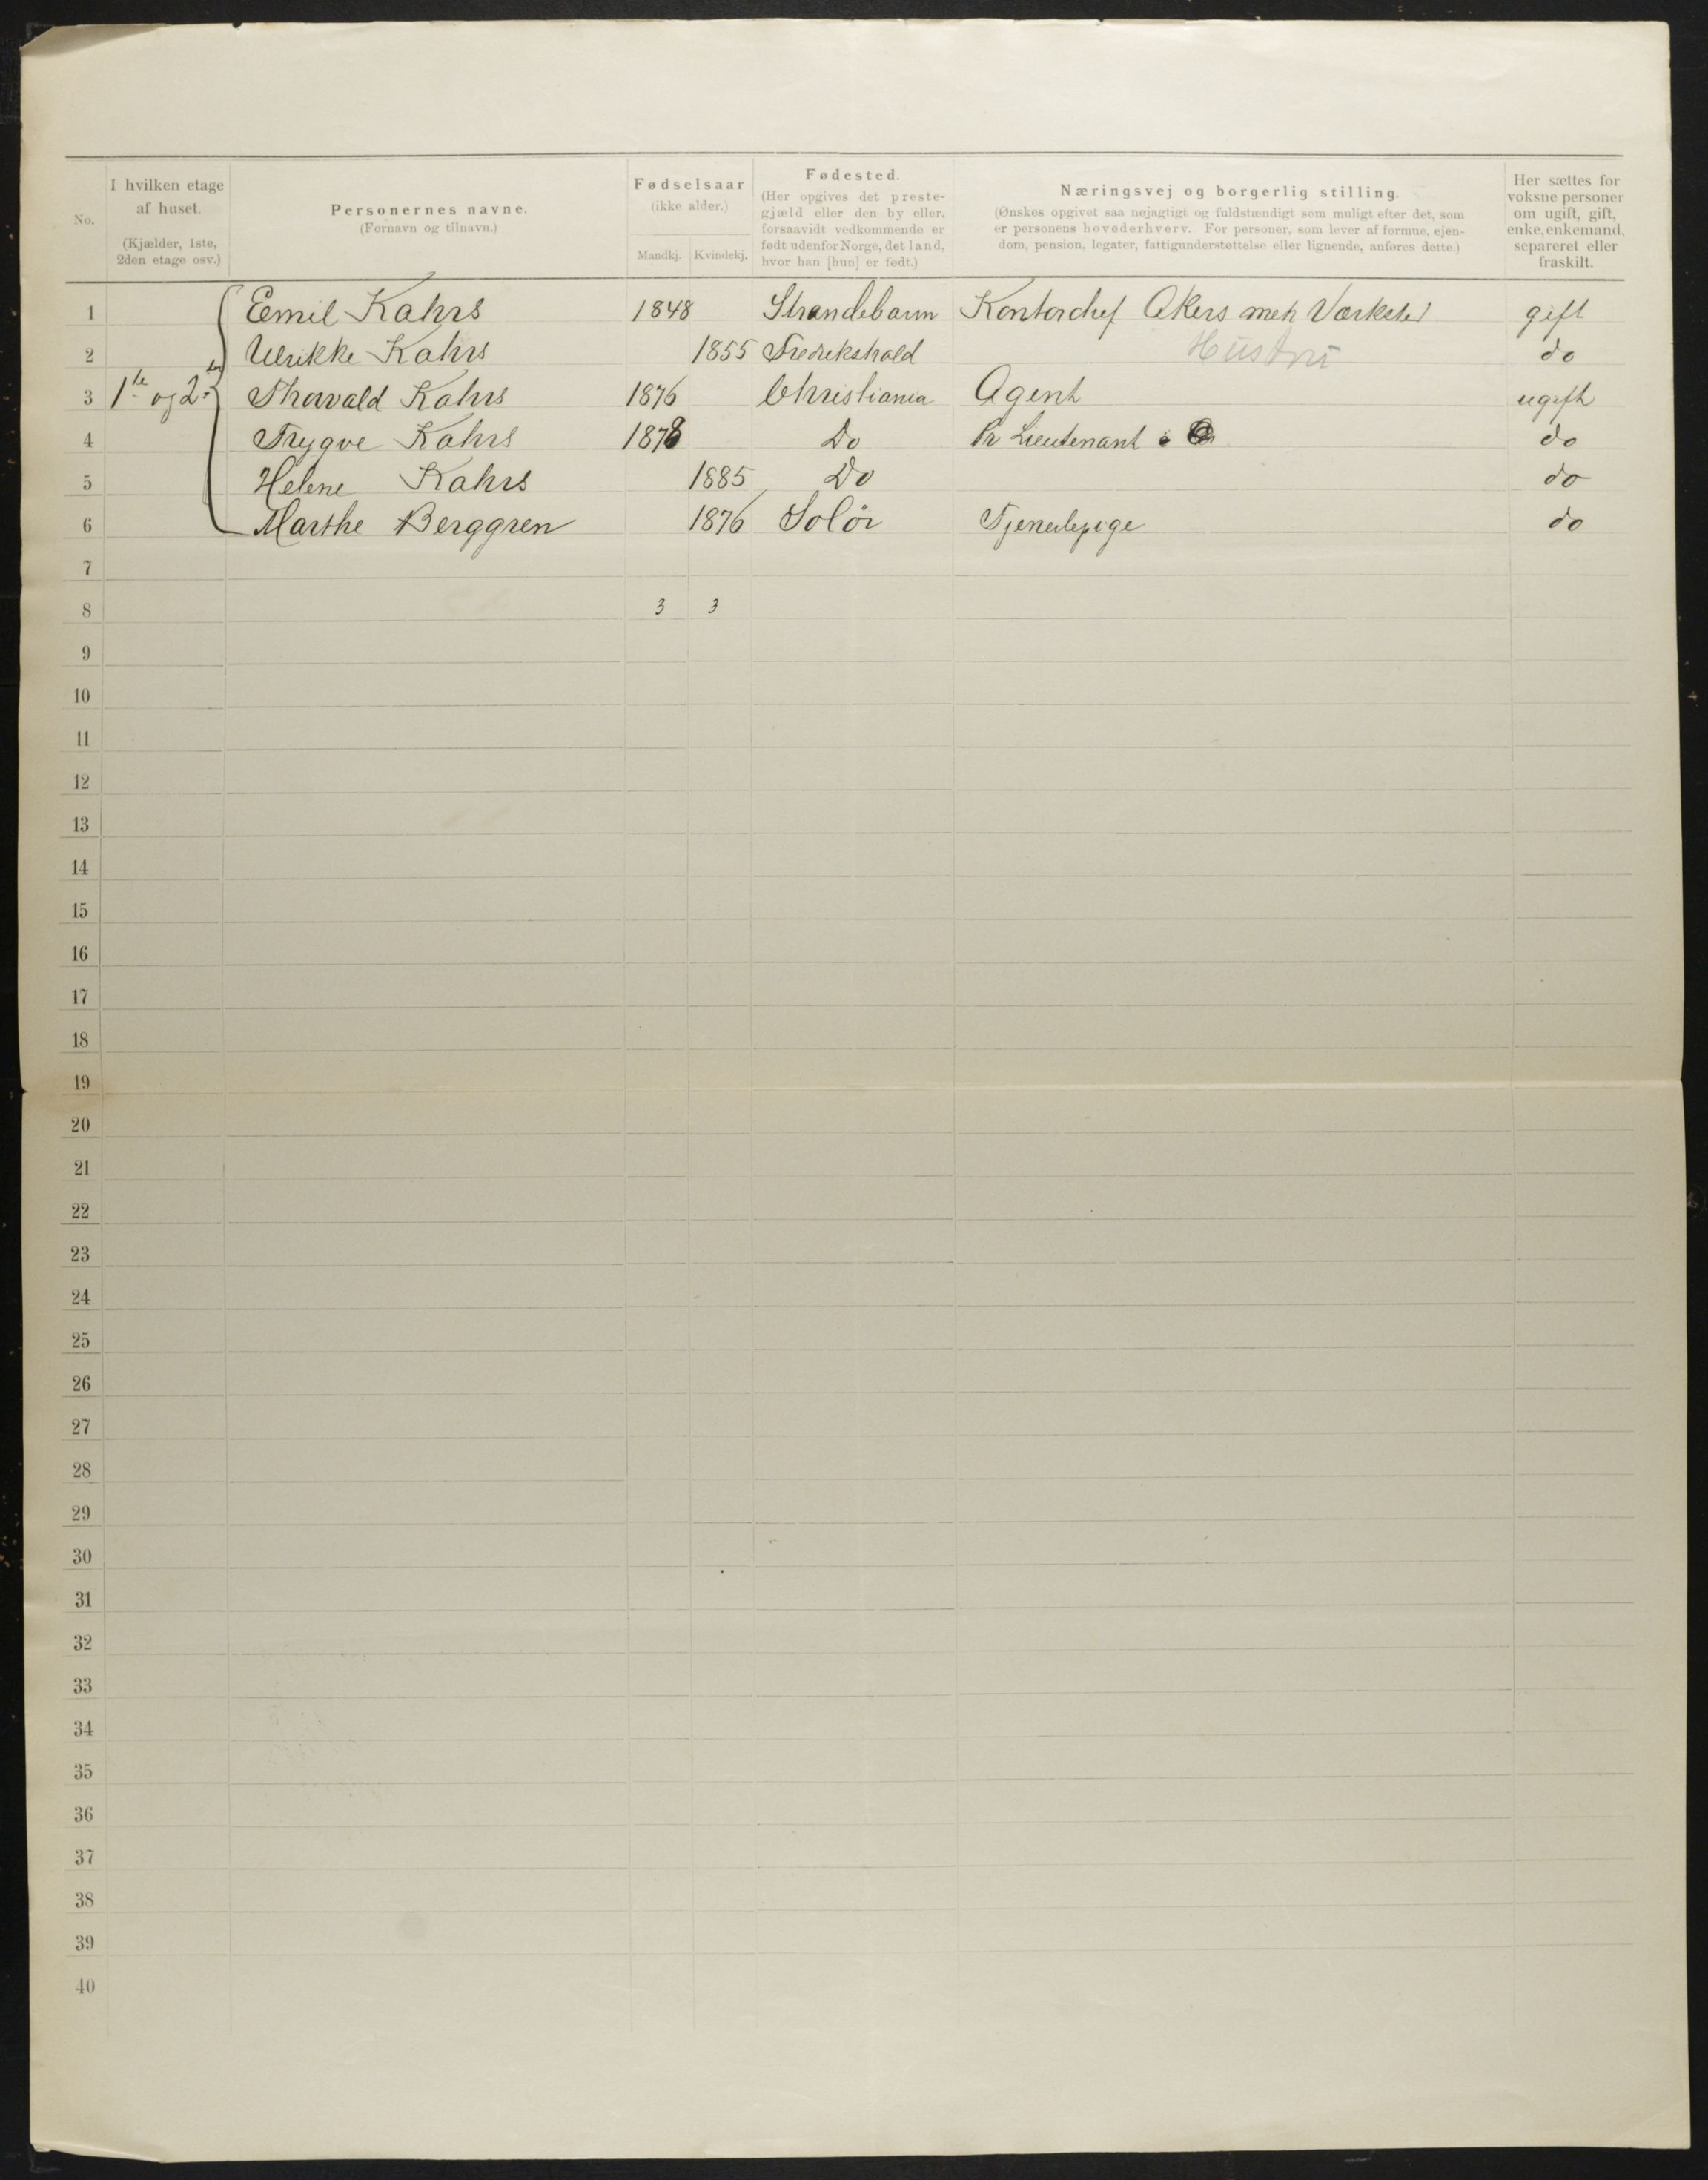 No.
I hvilken etage af huset.
(Kjælder, 1ste, 2den etage osv.)
Personernes navne.
(Fornavn og tilnavn.)
Fødselsaar
(ikke alder.)
Mandkj. Kvindekj.
Fødested.
(Her opgives det preste-
gjæld eller den by eller,
forsaavidt vedkommende er
født udenfor Norge, det land,
hvor han [hun] er født.)
Næringsvej og borgerlig stilling.
(Ønskes opgivet saa nøjagtigt og fuldstændigt som muligt efter det, som
er personens hovederhverv. For personer, som lever af formue, ejen-
dom, pension, legater, fattigunderstøttelse eller lignende, anføres dette.)
Her sættes for
voksne personer
om ugift, gift,
enke, enkemand,
separeret eller
fraskilt.
1 Eemil Kahrs 1848 Strandebarm Kontorchef Akers mek Værksted gift
2 Ulrikke Kahrs 1855 Fredrikshald Hustru do
3 1ste og 2den Thorvald Kahrs 1876 Christiania Agent ugift
4 Trygve Kahrs 1878 Do Pr Lieutenant do
5 Helene Kahrs 1885 Do do
6 Marthe Berggren 1876 Solör Tjenestepige do
7
8 3 3
9
10
11
12
13
14
15
16
17
18
19
20
21
22
23
24
25
26
27
28
29
30
31
32
33
34
35
36
37
38
39
40